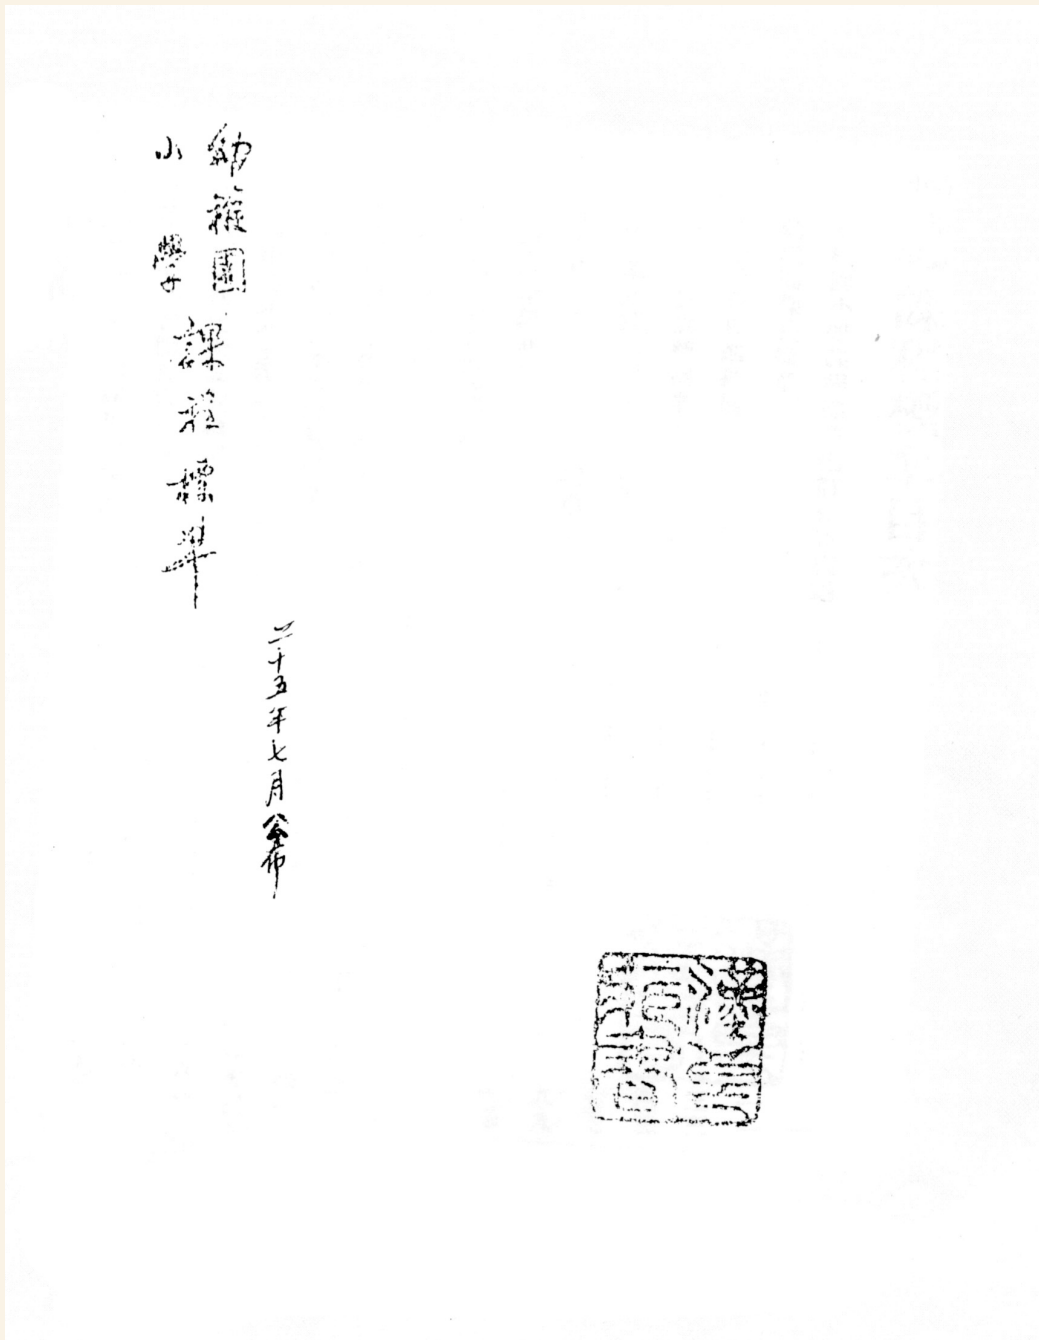 幼稚園
小學
課程標準
二十五年七月公布